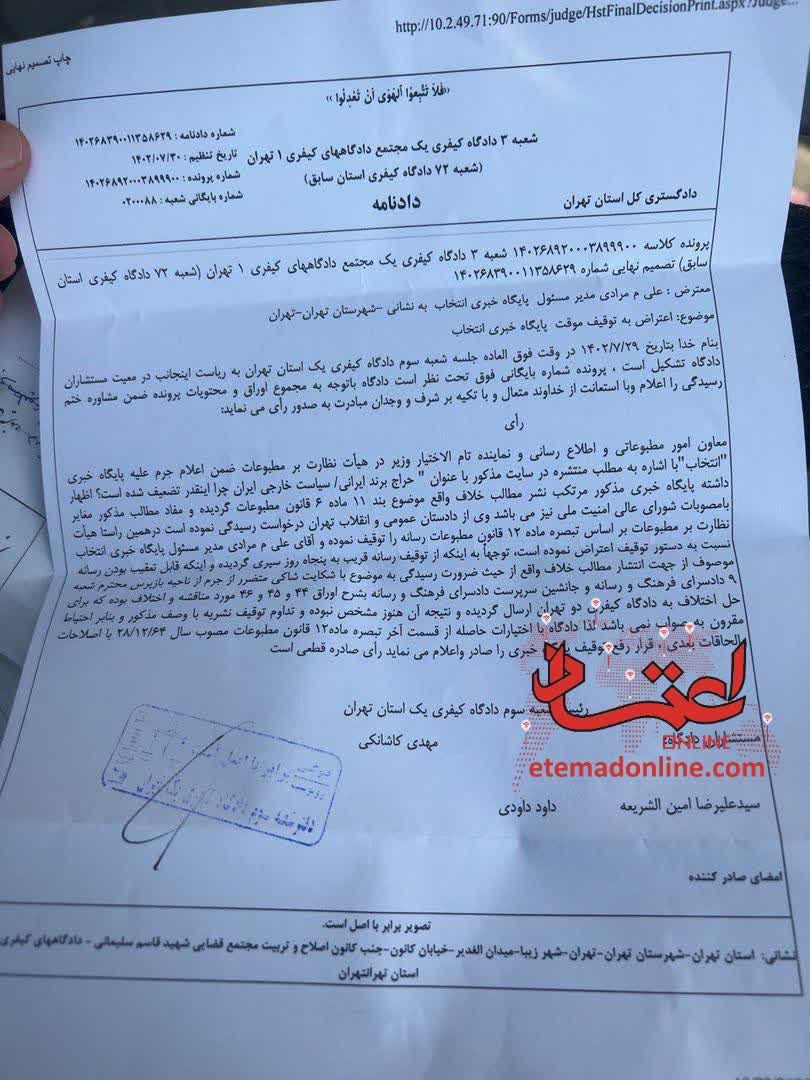 http://10.2.49.71:90/Forms/judge/HstFinalDecisionPrint.aspx?Judge...
چاپ تصمیم نهایی
«فَلاَ تَتَّبِعوُا اَلهَوَی اَنْ تَعْدِلُوا »
شعبه ۳ دادگاه کیفری یک مجتمع دادگاههای کیفری ۱ تهران
(شعبه ۷۲ دادگاه کیفری استان سابق)
دادگستری کل استان تهران
دادنامه
شماره دادنامه : ۱۴۰۲۶۸۳۹۰۰۱۱۳۵۸۶۲۹
تاریخ تنظیم : ۱۴۰۲/۰۷/۳۰
شماره پرونده : ۱۴۰۲۶۸۹۲۰۰۰۳۸۹۹۹۰۰
شماره بایگانی شعبه : ۰۲۰۰۰۸۸
پرونده کلاسه ۱۴۰۲۶۸۹۲۰۰۰۳۸۹۹۹۰۰ شعبه ۳ دادگاه کیفری یک مجتمع دادگاههای کیفری ۱ تهران (شعبه ۷۲ دادگاه کیفری استان
سابق) تصمیم نهایی شماره ۱۴۰۲۶۸۳۹۰۰۱۱۳۵۸۶۲۹
معترض : علی م مرادی مدیر مسئول پایگاه خبری انتخاب به نشانی -شهرستان تهران-تهران
موضوع: اعتراض به توقیف موقت پایگاه خبری انتخاب
بنام خدا بتاریخ ۱۴۰۲/۷/۲۹ در وقت فوق العاده جلسه شعبه سوم دادگاه کیفری یک استان تهران به ریاست اینجانب در معیت مستشاران
دادگاه تشکیل است ، پرونده شماره بایگانی فوق تحت نظر است دادگاه باتوجه به مجموع اوراق و محتویات پرونده ضمن مشاوره ختم
رسیدگی را اعلام وبا استعانت از خداوند متعال و با تکیه بر شرف و وجدان مبادرت به صدور رأی می نماید:
رأی
معاون امور مطبوعاتی و اطلاع رسانی و نماینده تام الاختیار وزیر در هیأت نظارت بر مطبوعات ضمن اعلام جرم علیه پایگاه خبری
"انتخاب"با اشاره به مطلب منتشره در سایت مذکور با عنوان " حراج برند ایرانی/ سیاست خارجی ایران چرا اینقدر تضعیف شده است؟ اظهار
داشته پایگاه خبری مذکور مرتکب نشر مطالب خلاف واقع موضوع بند ۱۱ ماده ۶ قانون مطبوعات گردیده و مفاد مطالب مذکور مغایر
بامصوبات شورای عالی امنیت ملی نیز می باشد وی از دادستان عمومی و انقلاب تهران درخواست رسیدگی نموده است درهمین راستا هیأت
نظارت بر مطبوعات بر اساس تبصره ماده ۱۲ قانون مطبوعات رسانه را توقیف نموده و آقای علی م مرادی مدیر مسئول پایگاه خبری انتخاب
نسبت به دستور توقیف اعتراض نموده است، توجهاً به اینکه از توقیف رسانه قریب به پنجاه روز سپری گردیده و اینکه قابل تعقیب بودن رسانه
موصوف از جهت انتشار مطالب خلاف واقع از حیث ضرورت رسیدگی به موضوع با شکایت شاکی متضرر از جرم از ناحیه بازپرس محترم شعبه
۹ دادسرای فرهنگ و رسانه و جانشین سرپرست دادسرای فرهنگ و رسانه بشرح اوراق ۴۴ و ۴۵ و ۴۶ مورد مناقشه و اختلاف بوده که برای
حل اختلاف به دادگاه کیفری دو تهران ارسال گردیده و نتیجه آن هنوز مشخص نبوده و تداوم توقیف نشریه با وصف مذکور و بنابر احتیاط
مقرون به صواب نمی باشد لذا دادگاه با اختیارات حاصله از قسمت آخر تبصره ماده۱۲ قانون مطبوعات مصوب سال ۲۸/۱۲/۶۴ با اصلاحات
الحاقات بعدی ، قرار رفع توقیف خبری را صادر واعلام می نماید رأی صادره قطعی است
رئیس شعبه سوم دادگاه کیفری یک استان تهران
مهدی کاشانکی
مستشاران دادگاه:
سیدعلیرضا امین الشریعه
داود داودی
اعتماد
ONLINE
etemadonline.com
رونوشت برابر با اصل است
دفتر شعبه سوم دادگاه کیفری یک تهران
امضای صادر کننده
تصویر برابر با اصل است.
نشانی: استان تهران-شهرستان تهران-تهران-شهر زیبا-میدان الغدیر-خیابان کانون-جنب کانون اصلاح و تربیت مجتمع قضایی شهید قاسم سلیمانی - دادگاههای کیفری
استان تهرانتهران